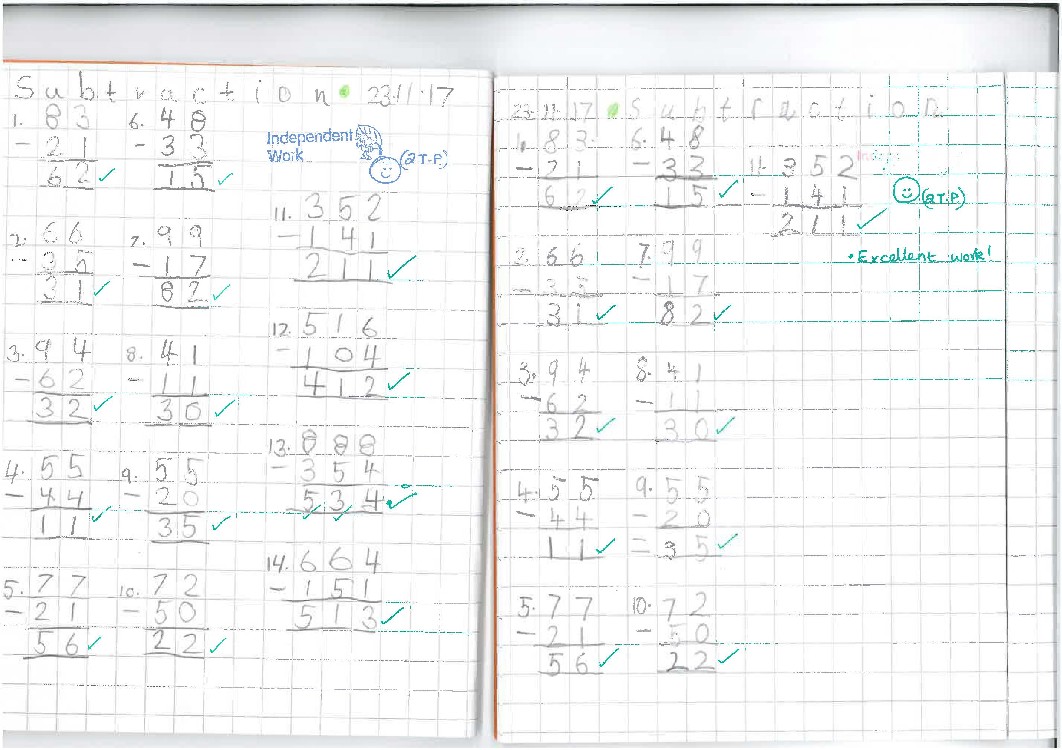 Subtraction 23.11.17
1. 83
- 21
62
2. 66
- 35
31
3. 94
- 62
32
4. 55
- 44
11
5. 77
- 21
56
6. 48
- 33
15
7. 99
- 17
82
8. 41
- 11
30
9. 55
- 20
35
10. 72
- 50
22
Independent
Work
(2T.P)
11. 352
- 141
211
12. 516
- 104
412
13. 888
- 354
534
14. 664
- 151
513
23.11.17 Subtraction
1. 83
- 21
62
2. 66
- 35
31
3. 94
- 62
32
4. 55
- 44
11
5. 77
- 21
56
6. 48
- 33
15
7. 99
- 17
82
8. 41
- 11
30
9. 55
- 20
= 35
10. 72
- 50
22
11. 352
- 141
211
(2T.P)
• Excellent work!